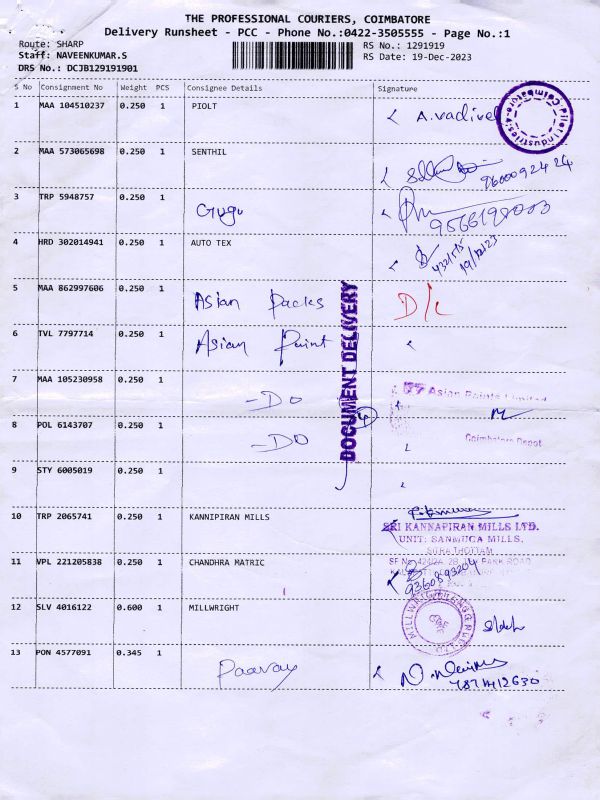 THE PROFESSIONAL COURIERS, COIMBATORE
Delivery Runsheet - PCC - Phone No.:0422-3505555 - Page No.:1
Route: SHARP
Staff: NAVEENKUMAR.S
DRS No.: DCJB129191901
RS No.: 1291919
RS Date: 19-Dec-2023
S No Consignment No Weight PCS Consignee Details Signature
1 MAA 104510237 0.250 1 PIOLT A.Vadivel
2 MAA 573065698 0.250 1 SENTHIL
3 TRP 5948757 0.250 1 Gugu
4 HRD 302014941 0.250 1 AUTO TEX 19/12/23
5 MAA 862997606 0.250 1 Asian Packs D/L
6 TVL 7797714 0.250 1 Asian Paint
7 MAA 105230958 0.250 1 -DO Asian Paints Limited
8 POL 6143707 0.250 1 -DO Coimbatore Depot
DOCUMENT DELIVERY
9 STY 6005019 0.250 1
10 TRP 2065741 0.250 1 KANNIPIRAN MILLS
SRI KANNAPIRAN MILLS LTD.
UNIT: SANMUGA MILLS,
11 VPL 221205838 0.250 1 CHANDHRA MATRIC 9360893204
12 SLV 4016122 0.600 1 MILLWRIGHT
13 PON 4577091 0.345 1 Paavay